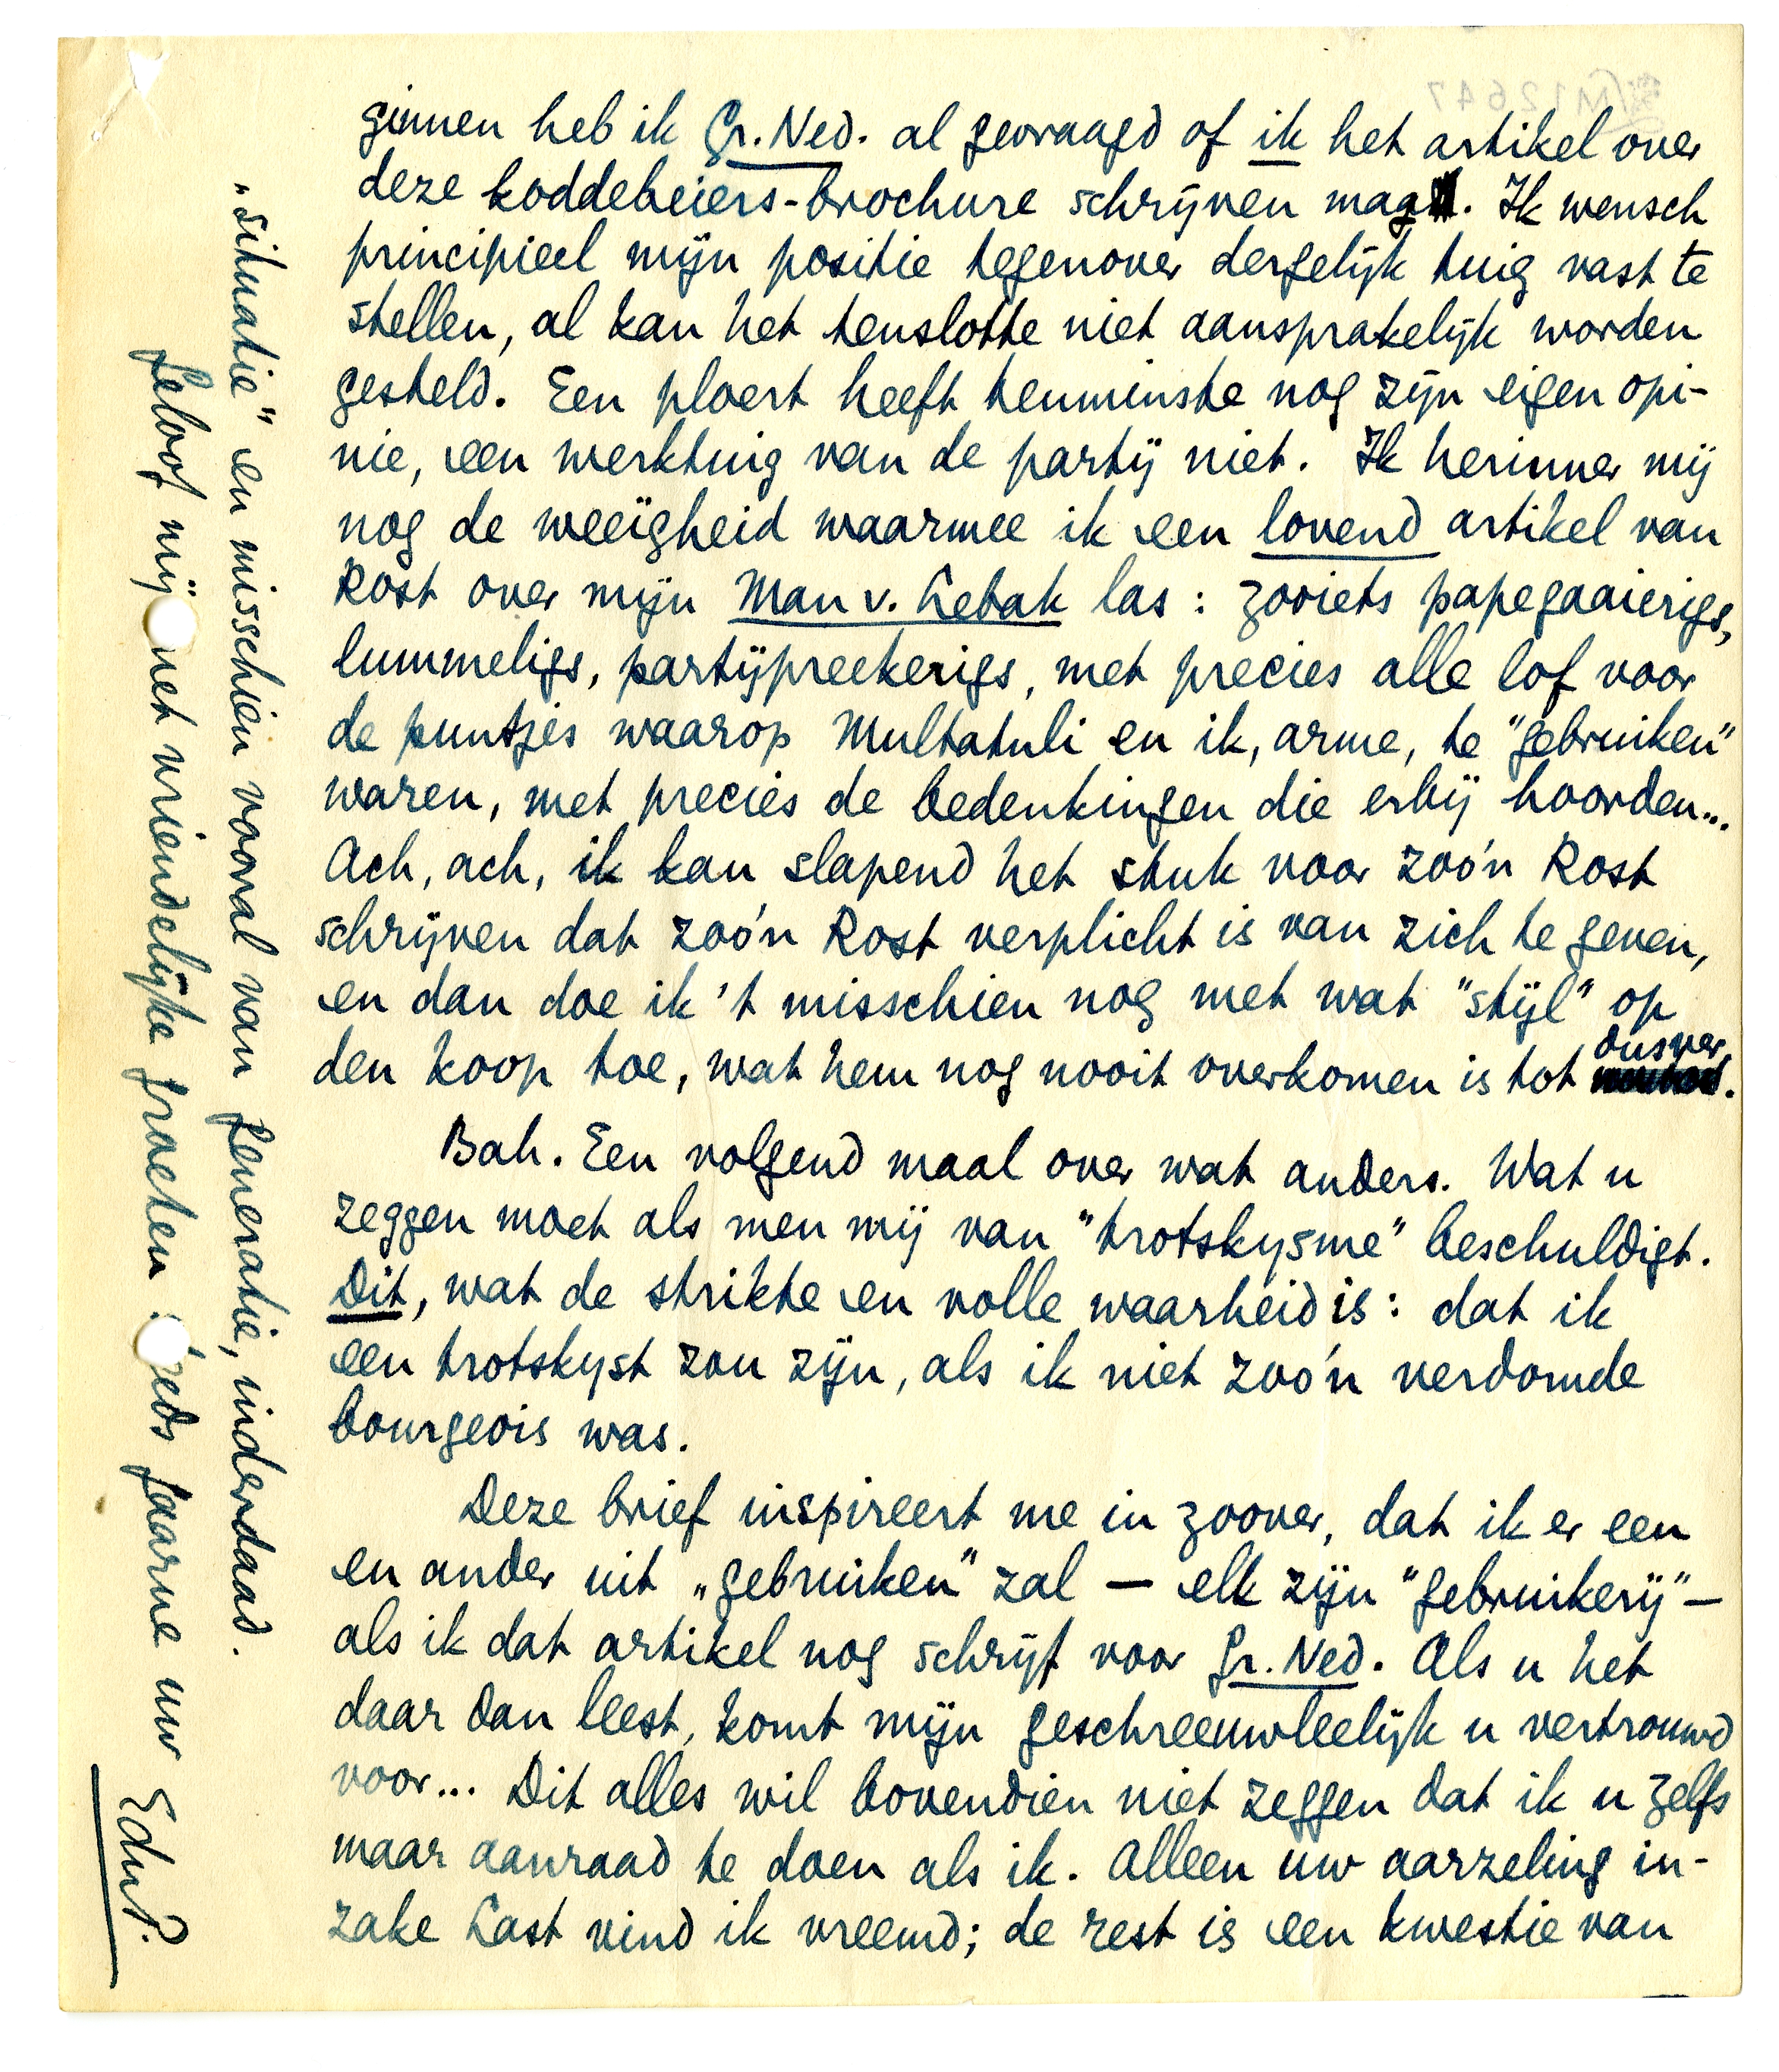 ginnen heb ik Gr. Ned. al gevraagd of ik het artikel over
deze koddebeiers-brochure schrijven mag. Ik wensch
principieel mijn positie tegenover dergelijk tuig vast te
stellen, al kan het tenslotte niet aansprakelijk worden
gesteld. Een ploert heeft tenminste nog zijn eigen opi-
nie, een werktuig van de partij niet. Ik herinner mij
nog de weeïgheid waarmee ik een lovend artikel van
Rost over mijn Man v. Lebak las: zooiets papegaaierigs,
lummeligs, partijpreekerigs, met precies alle lof voor
de puntjes waarop Multatuli en ik, arme, te "gebruiken"
waren, met precies de bedenkingen die erbij hoorden...
Ach, ach, ik kan slapend het stuk voor zoo'n Rost
schrijven dat zoo'n Rost verplicht is van zich te geven,
en dan doe ik 't misschien nog met wat "stijl" op
den koop toe, wat hem nog nooit overkomen is tot dusver.
Bah. Een volgend maal over wat anders. Wat u
zeggen moet als men mij van "trotskysme" beschuldigt.
Dit, wat de strikte en volle waarheid is: dat ik
een trotskyst zou zijn, als ik niet zoo'n verdomde
bourgeois was.
Deze brief inspireert me in zoover, dat ik er een
en ander uit „gebruiken" zal — elk zijn "gebruikerij" —
als ik dat artikel nog schrijf voor Gr. Ned. Als u het
daar dan leest, komt mijn geschreeuw leelijk u vertrouwd
voor... Dit alles wil bovendien niet zeggen dat ik u zelfs
maar aanraad te doen als ik. Alleen uw aarzeling in-
zake Last vind ik vreemd; de rest is een kwestie van
„situatie" en misschien vooral van generatie, inderdaad.
Geloof mij met vriendelijke groeten steeds gaarne uw
EduP.
M12647